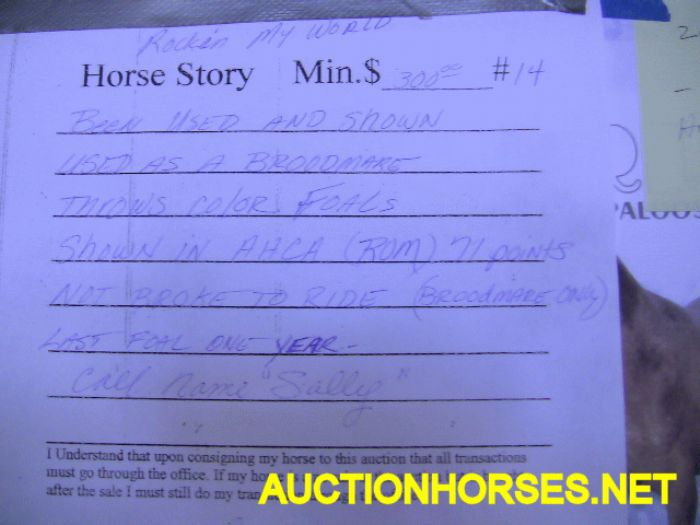 Rockin My World
Horse Story Min.$ 300.00 #14
Been Used and shown
Used as a Broodmare
Throws color Foals
Shown in AHCA (ROM) 71 points
Not Broke to Ride (Broodmare only)
Last Foal one year-
Call name "Sally"
I Understand that upon consigning my horse to this auction that all transactions
must go through the office. If my
after the sale I must still do my
PALOOS
AUCTIONHORSES.NET